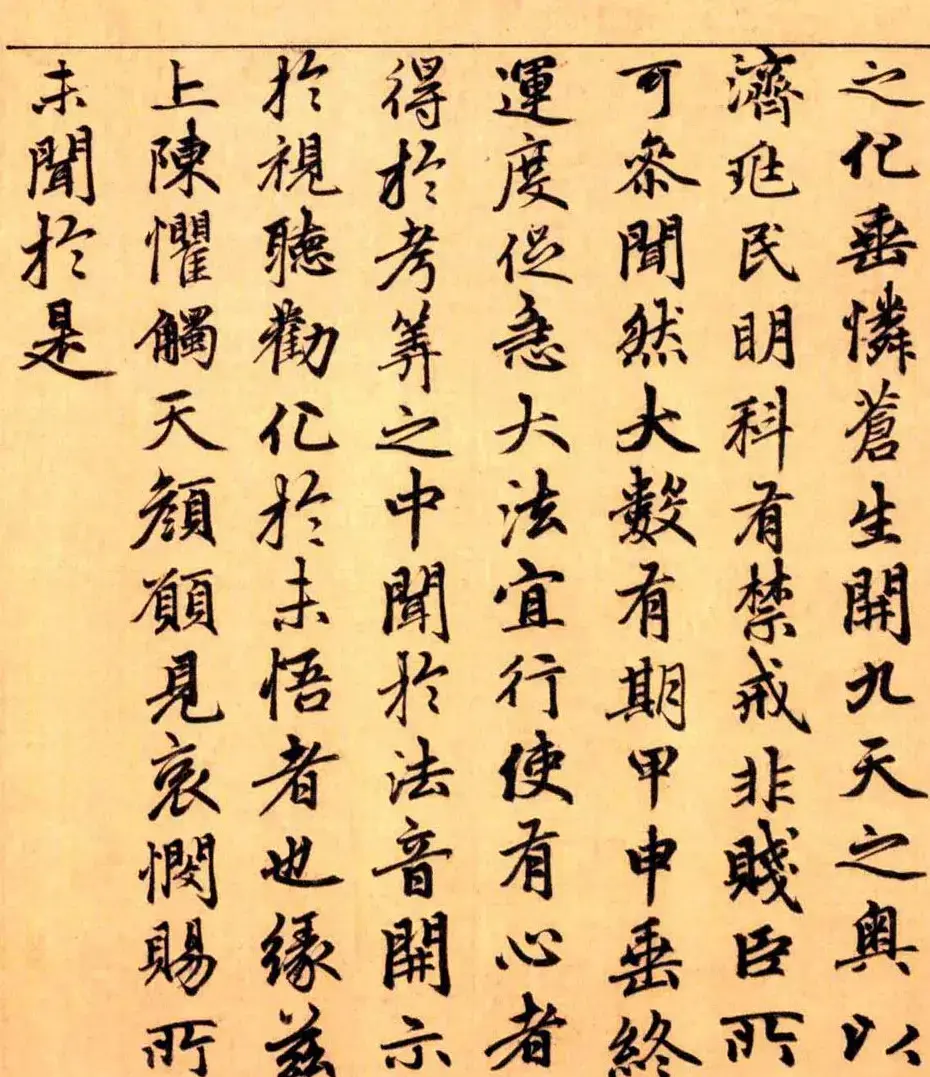 之化垂憐蒼生開九天之奧以
濟兆民明科有禁戒非賤臣所
可參聞然大數有期甲申垂終
運度促急大法宜行使有心者
得於考筭之中聞於法音開示
於視聽勸化於未悟者也緣茲
上陳懼觸天顏願見哀憫賜所
未聞於是